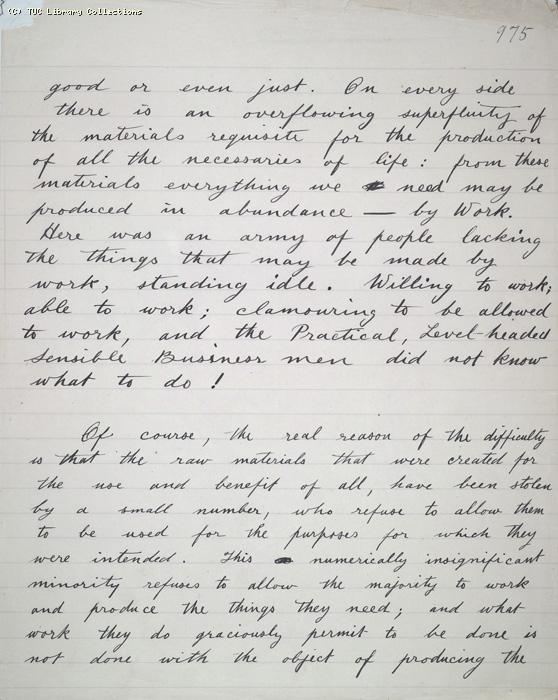 (C) TUC Library Collections
975
good or even just. On every side
there is an overflowing superfluity of
the materials requisite for the production
of all the necessaries of life: from these
materials everything we need may be
produced in abundance — by Work.
Here was an army of people lacking
the things that may be made by
work, standing idle. Willing to work;
able to work; clamouring to be allowed
to work, and the Practical, Level-headed
Sensible Business men did not know
what to do!
Of course, the real reason of the difficulty
is that the raw materials that were created for
the use and benefit of all, have been stolen
by a small number, who refuse to allow them
to be used for the purposes for which they
were intended. This numerically insignificant
minority refuses to allow the majority to work
and produce the things they need; and what
work they do graciously permit to be done is
not done with the object of producing the